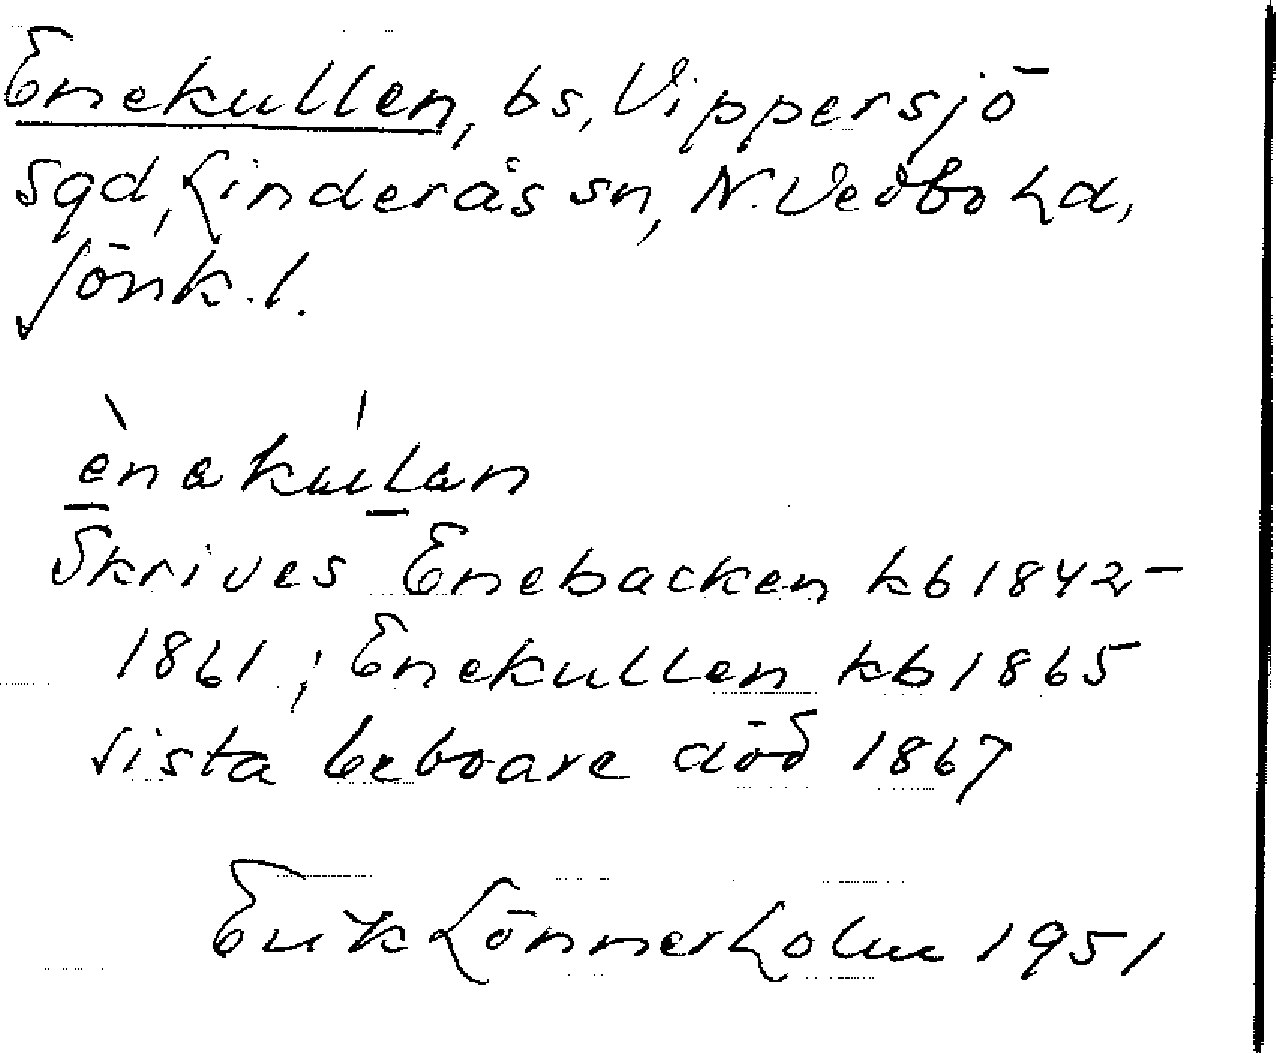 Enekullen, bs, Vippersjö
sgd, Linderås sn, N. Vedbo hd,
Jönk. l.
ènakúlan
Skrives Enebacken kb 1842-
1861; Enekullen kb 1865
sista beboare död 1867
Erik Lönnerholm 1951